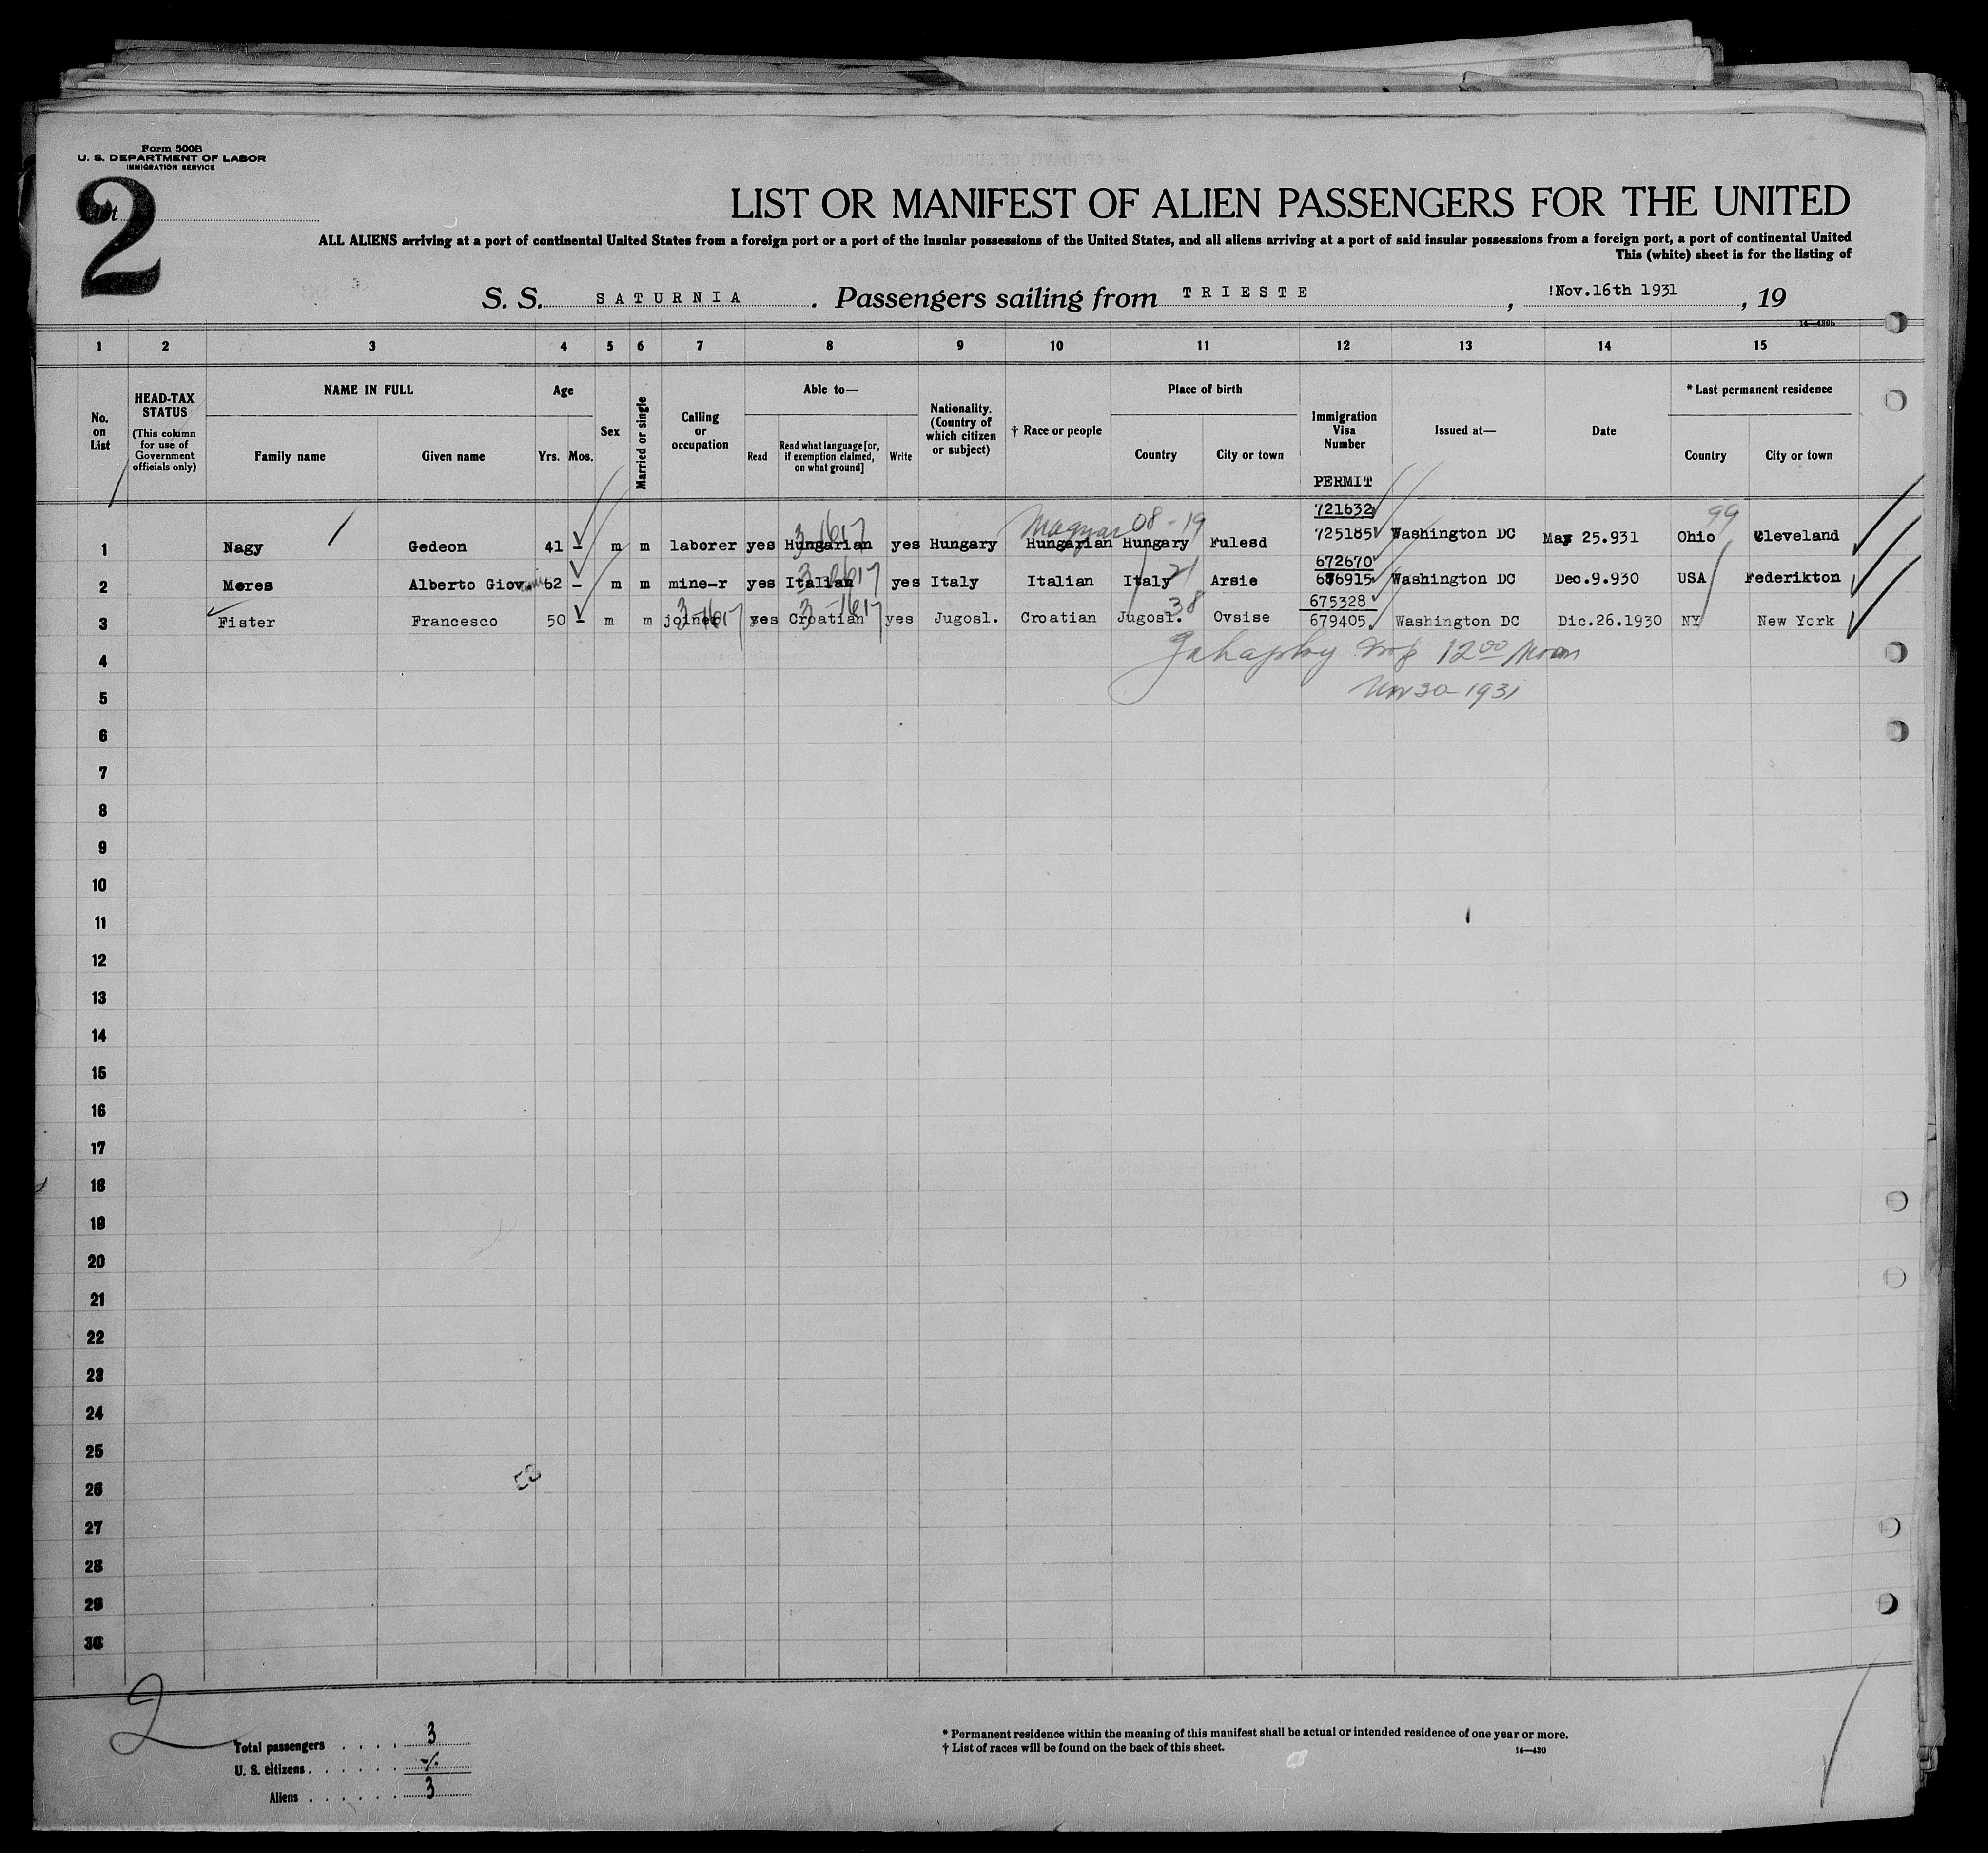 Form 500B
U. S. DEPARTMENT OF LABOR
IMMIGRATION SERVICE
2
LIST OR MANIFEST OF ALIEN PASSENGERS FOR THE UNITED
ALL ALIENS arriving at a port of continental United States from a foreign port or a port of the insular possessions of the United States, and all aliens arriving at a port of said insular possessions from a foreign port, a port of continental United
This (white) sheet is for the listing of
S. S. SATURNIA. Passengers sailing from TRIESTE, Nov.16th 1931, 19
14—430b
1 2 3 4 5 6 7 8 9 10 11 12 13 14 15
No. on List
HEAD-TAX STATUS
(This column for use of Government officials only)
NAME IN FULL
Family name Given name
Age
Yrs. Mos.
Sex
Married or single
Calling or occupation
Able to—
Read
Read what language [or, if exemption claimed, on what ground]
Write
Nationality. (Country of which citizen or subject)
† Race or people
Place of birth
Country City or town
Immigration Visa Number
PERMIT
Issued at—
Date
* Last permanent residence
Country City or town
721632
Magyar 08-19 99
3-1617
1 Nagy Gedeon 41 - m m laborer yes Hungarian yes Hungary Hungarian Hungary Fulesd 725185 Washington DC May 25.931 Ohio Cleveland
672670
2 Meres Alberto Giovanni 62 - m m mine-r yes Italian yes Italy Italian Italy 21 Arsie 676915 Washington DC Dec.9.930 USA Federikton
675328
3-1617 3-1617
3 Fister Francesco 50 - m m joiner yes Croatian yes Jugosl. Croatian Jugosl. 38 Ovsise 679405 Washington DC Dic.26.1930 NY New York
4 12 00 Noon
5 Nov 30-1931
6
7
8
9
10
11
12
13
14
15
16
17
18
19
20
21
22
23
24
25
26
27
28
29
30
2
Total passengers . . . . 3
U. S. citizens . . . . . . -/.
Aliens . . . . . . 3
* Permanent residence within the meaning of this manifest shall be actual or intended residence of one year or more.
† List of races will be found on the back of this sheet.
14—430